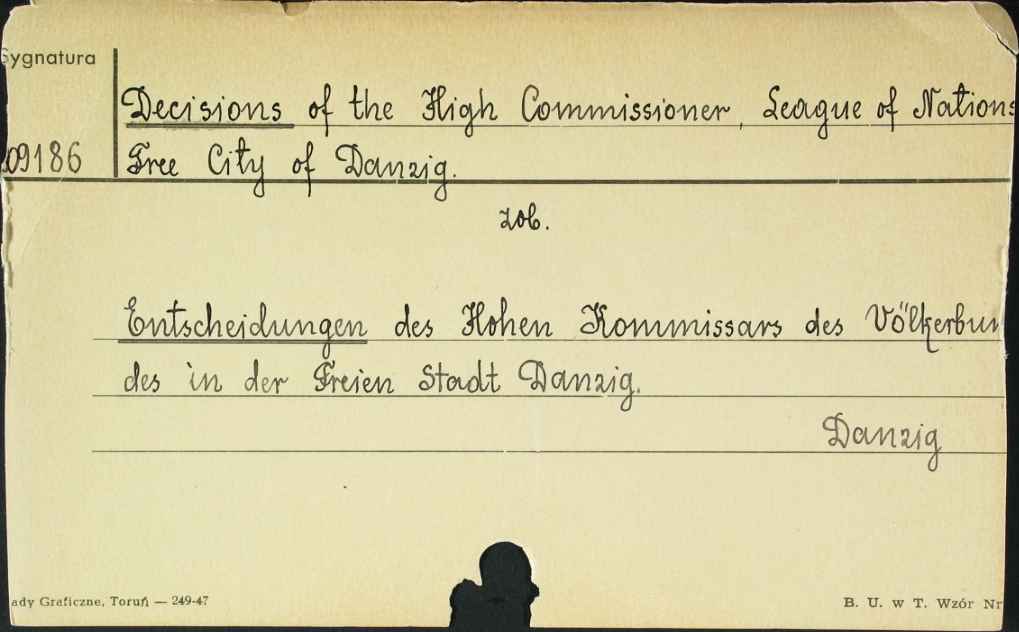 Sygnatura
09186
Decisions of the High Commissioner, League of Nations
Free City of Danzig.
zob.
Entscheidungen des Hohen Kommissars des Völkerbun
des in der Freien Stadt Danzig.
Danzig
ady Graficzne, Toruń — 249-47
B. U. w T. Wzór Nr